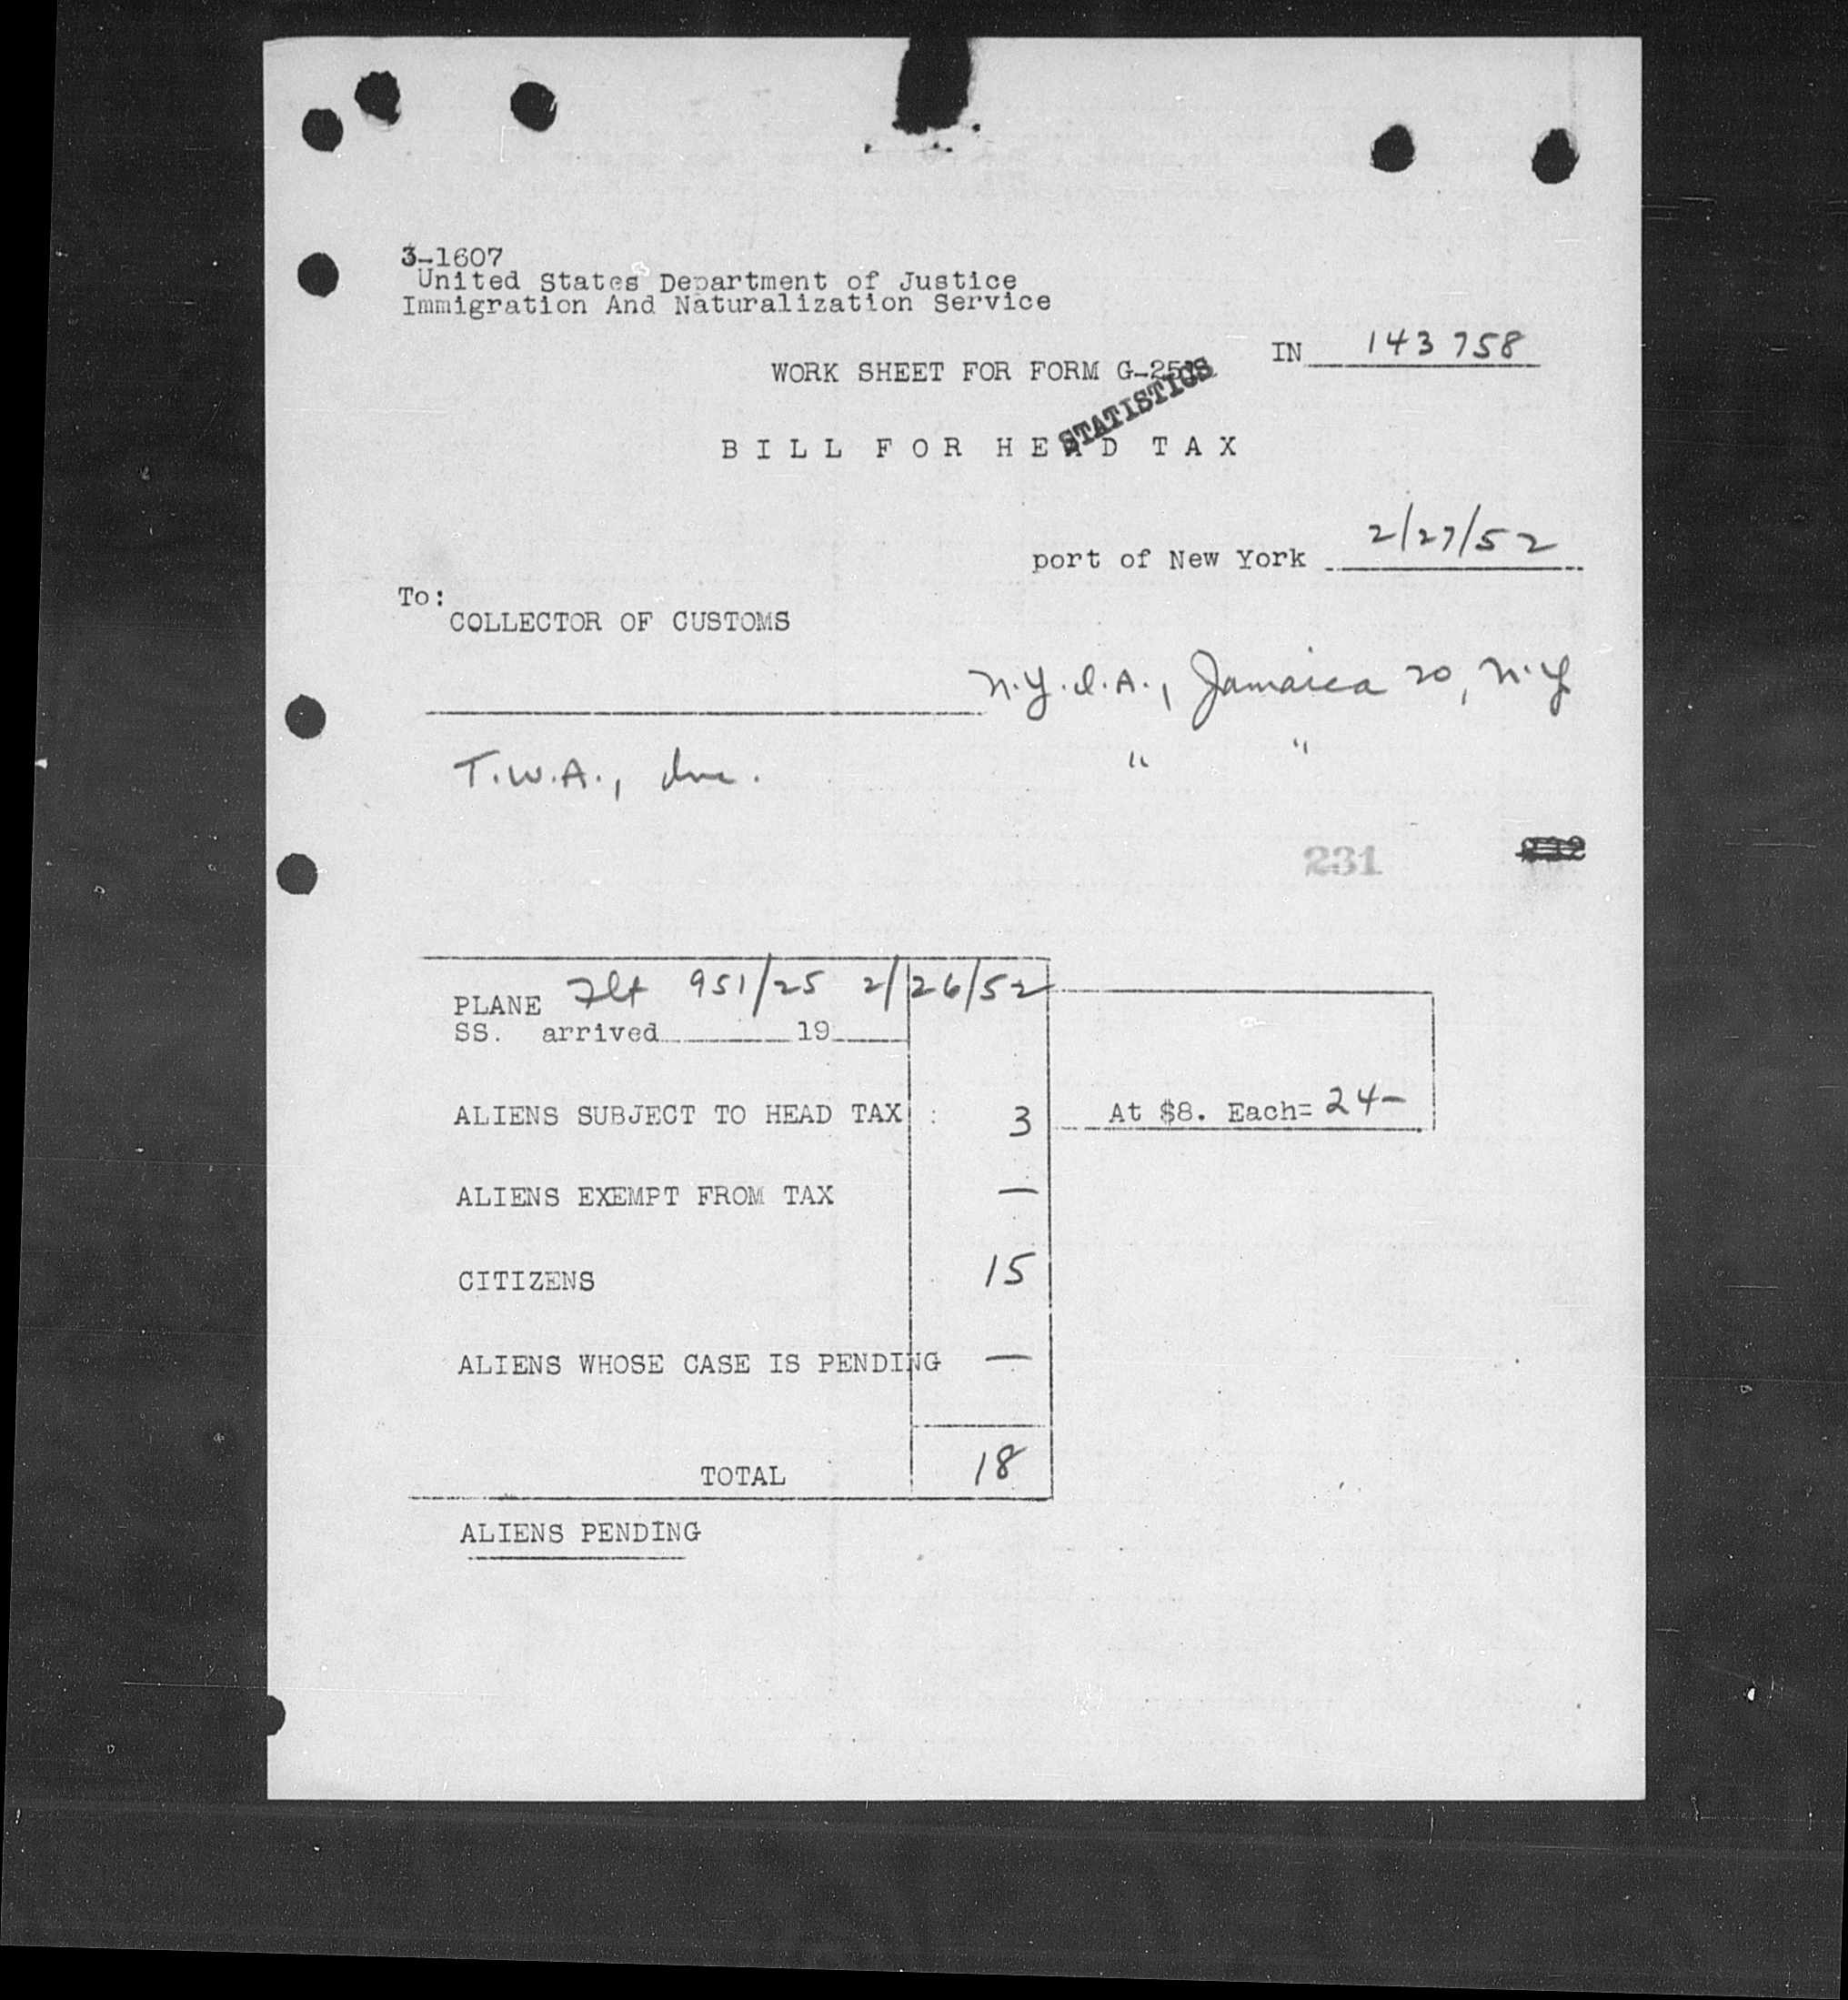 3-1607
United States Department of Justice
Immigration And Naturalization Service
IN 143758
WORK SHEET FOR FORM
STATISTICS
BILL FOR HEAD TAX
port of New York 2/27/52
To:
COLLECTOR OF CUSTOMS
N.Y.I.A., Jamaica 20, N.Y.
T.W.A., Inc. " "
231
PLANE Flt 951/25 2/26/52
SS. arrived 19
ALIENS SUBJECT TO HEAD TAX : 3 At $8. Each= 24-
ALIENS EXEMPT FROM TAX —
CITIZENS 15
ALIENS WHOSE CASE IS PENDING —
TOTAL 18
ALIENS PENDING